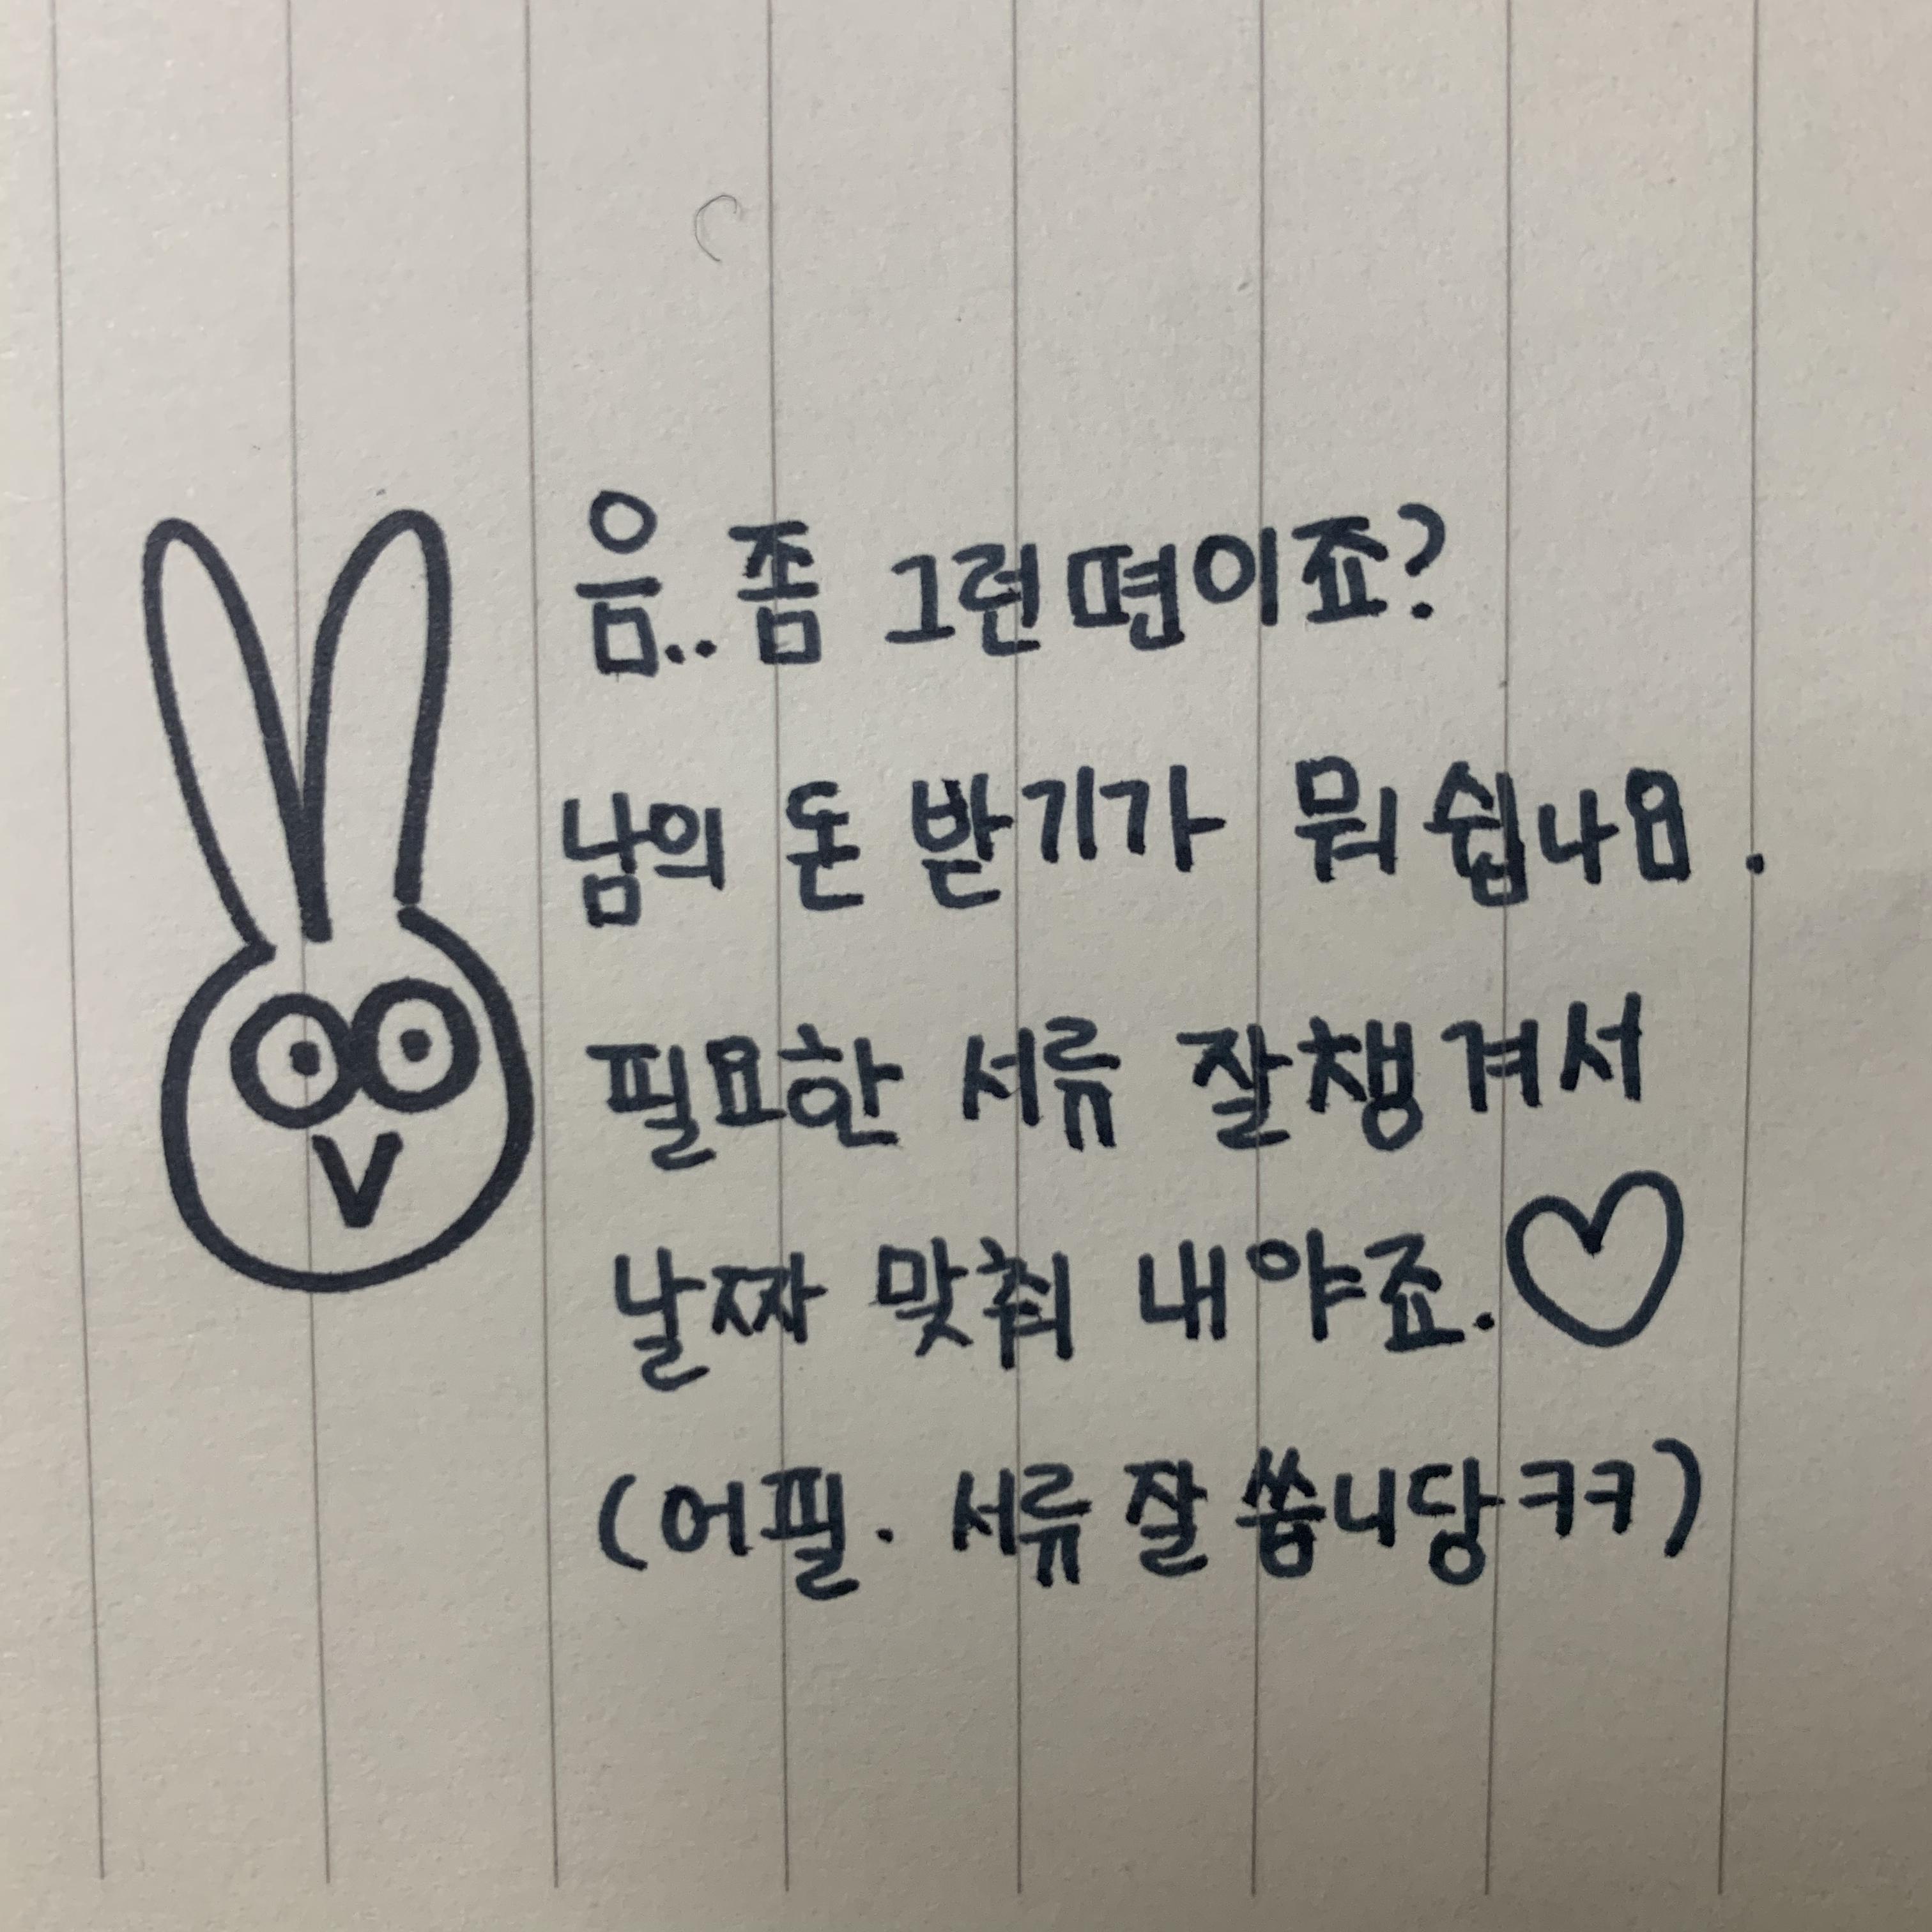 음.. 좀 그런편이죠?
남의 돈 받기가 뭐 쉽나요.
필요한 서류 잘챙겨서
날짜 맞춰 내야죠.♡
(어필. 서류 잘 씀니당ㅋㅋ)